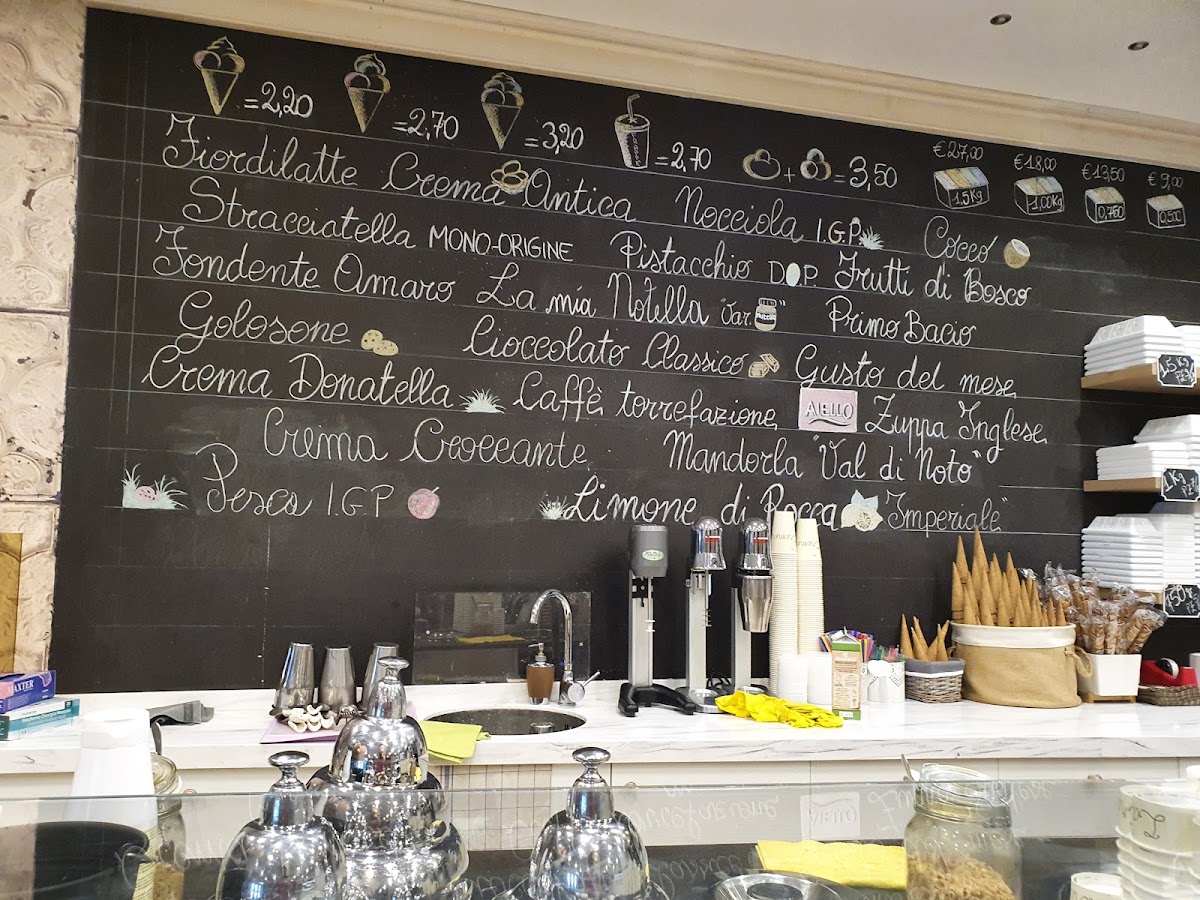 =2,20 =2,70 =3,20 =2,70 + =3,50
€27,00 €18,00 €13,50 €9,00
1.5Kg 1,00Kg 0,750 0,500
Fiordilatte Crema Antica Nocciola I.G.P. Cocco
Stracciatella MONO-ORIGINE Pistacchio D.O.P. Frutti di Bosco
Fondente Amaro La mia Notella "Var. Nutella" Primo Bacio
Golosone Cioccolato Classico Gusto del mese
Crema Donatella Caffè torrefazione AIELLO Zuppa Inglese
Crema Croccante Mandorla "Val di Noto"
Pesca I.G.P Limone di Rocca Imperiale"
1Kg